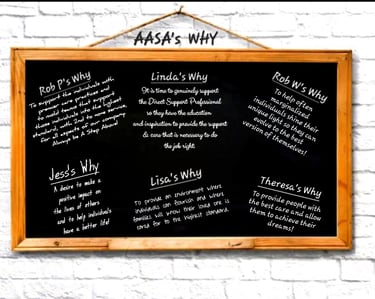 AASA's WHY
Rob P's Why
To support the individuals with
person care practices and
to mold teams that support
those individuals into the highest
standard, with 2nd to none service
in all aspects of our company.
Always be A Step Above!
Linda's Why
It is time to genuinely support
the Direct Support Professional
so they have the education
and inspiration to provide the support
& care that is necessary to do
the job right.
Rob W's Why
To help often
marginalized
individuals shine their
unique light so they can
evolve to the best
version of themselves!
Jess's Why
A desire to make a
positive impact on
the lives of others
and to help individuals
have a better life!
Lisa's Why
To provide an environment where
individuals can flourish and where
families will know their loved one is
cared for to the highest standard.
Theresa's Why
To provide people with
the best care and allow
them to achieve their
dreams!